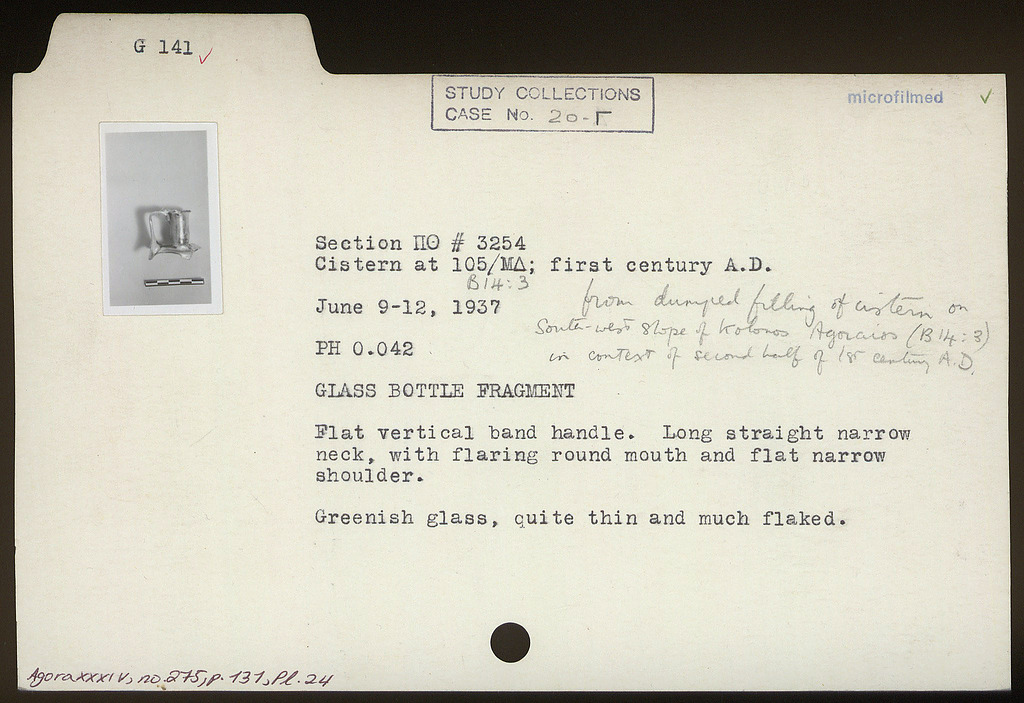 G 141
STUDY COLLECTIONS
CASE No. 20-Γ
microfilmed
Section ΠΘ # 3254
Cistern at 105/ΜΔ; first century A.D.
B14:3
June 9-12, 1937
from dumped filling of cistern on
South-west slope of Kolonos Agoraios (B14:3)
in context of second half of 1st century A.D.
PH 0.042
GLASS BOTTLE FRAGMENT
Flat vertical band handle. Long straight narrow
neck, with flaring round mouth and flat narrow
shoulder.
Greenish glass, quite thin and much flaked.
Agora XXXIV, no. 275, p. 131, Pl. 24